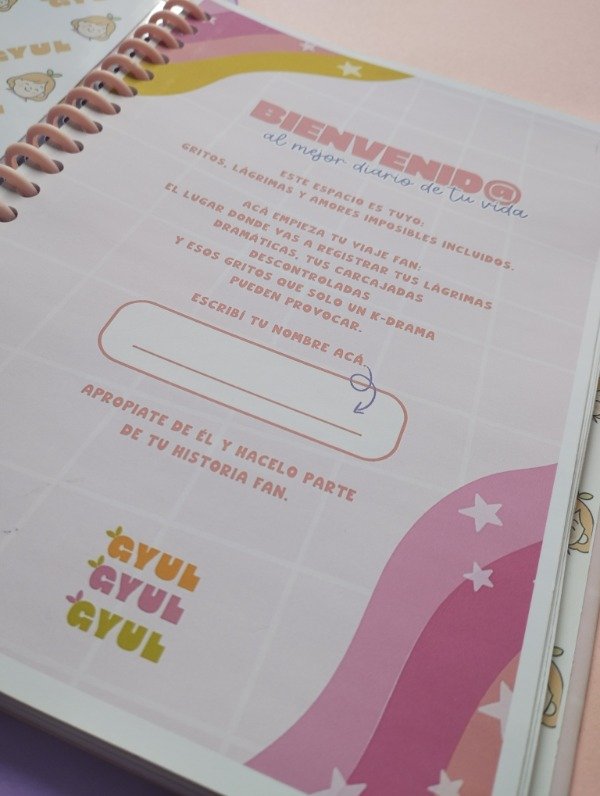 GYUL
BIENVENID@
al mejor diario de tu vida
ESTE ESPACIO ES TUYO:
GRITOS, LÁGRIMAS Y AMORES IMPOSIBLES INCLUIDOS.
ACÁ EMPIEZA TU VIAJE FAN:
EL LUGAR DONDE VAS A REGISTRAR TUS LÁGRIMAS
DRAMÁTICAS, TUS CARCAJADAS
DESCONTROLADAS
Y ESOS GRITOS QUE SOLO UN K-DRAMA
PUEDEN PROVOCAR.
ESCRIBÍ TU NOMBRE ACÁ.
APROPIATE DE ÉL Y HACELO PARTE
DE TU HISTORIA FAN.
GYUL
GYUL
GYUL